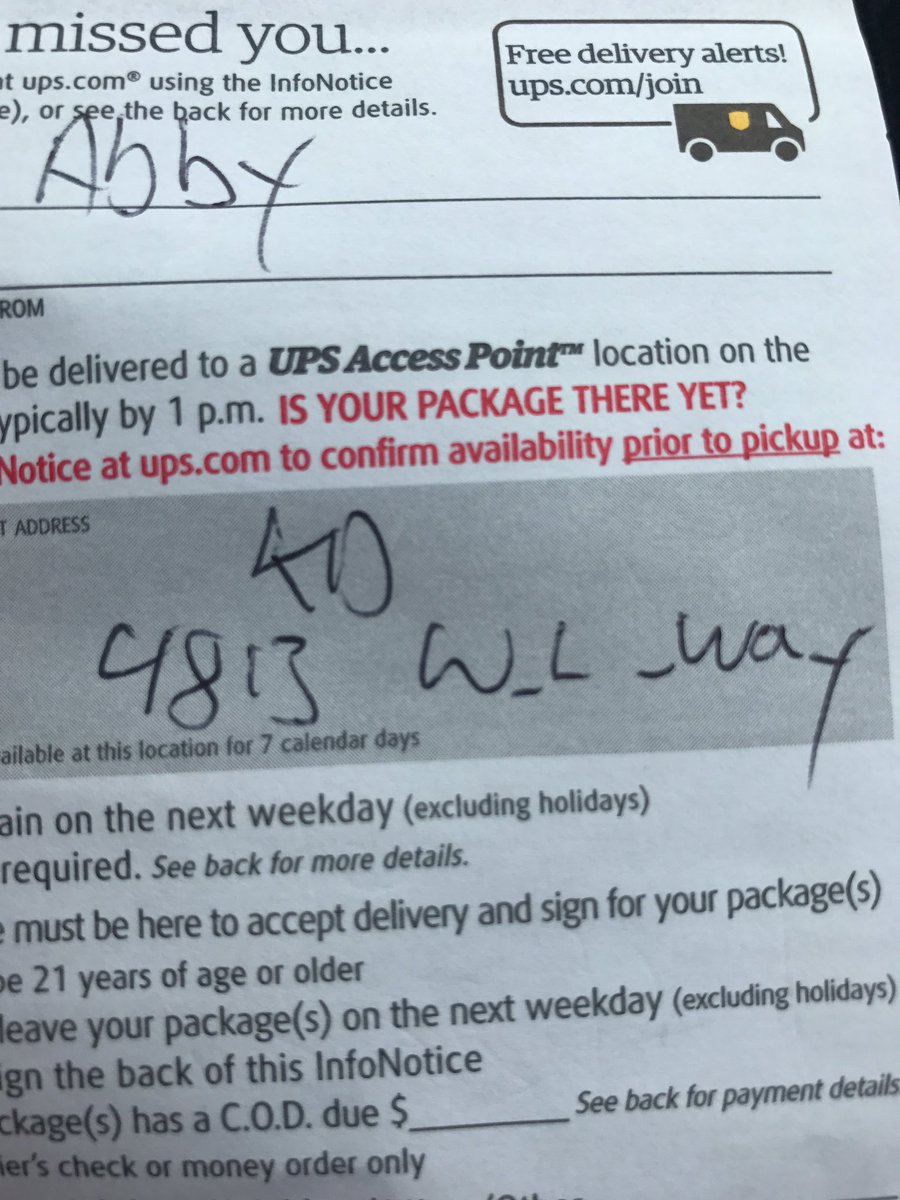 missed you...
Free delivery alerts!
ups.com/join
at ups.com® using the InfoNotice
e), or see the back for more details.
Abby
ROM
be delivered to a UPS Access Point™ location on the
ypically by 1 p.m. IS YOUR PACKAGE THERE YET?
Notice at ups.com to confirm availability prior to pickup at:
T ADDRESS
4813 W_L_Way
ailable at this location for 7 calendar days
ain on the next weekday (excluding holidays)
required. See back for more details.
e must be here to accept delivery and sign for your package(s)
be 21 years of age or older
leave your package(s) on the next weekday (excluding holidays)
ign the back of this InfoNotice
ckage(s) has a C.O.D. due $________ See back for payment details
ier's check or money order only